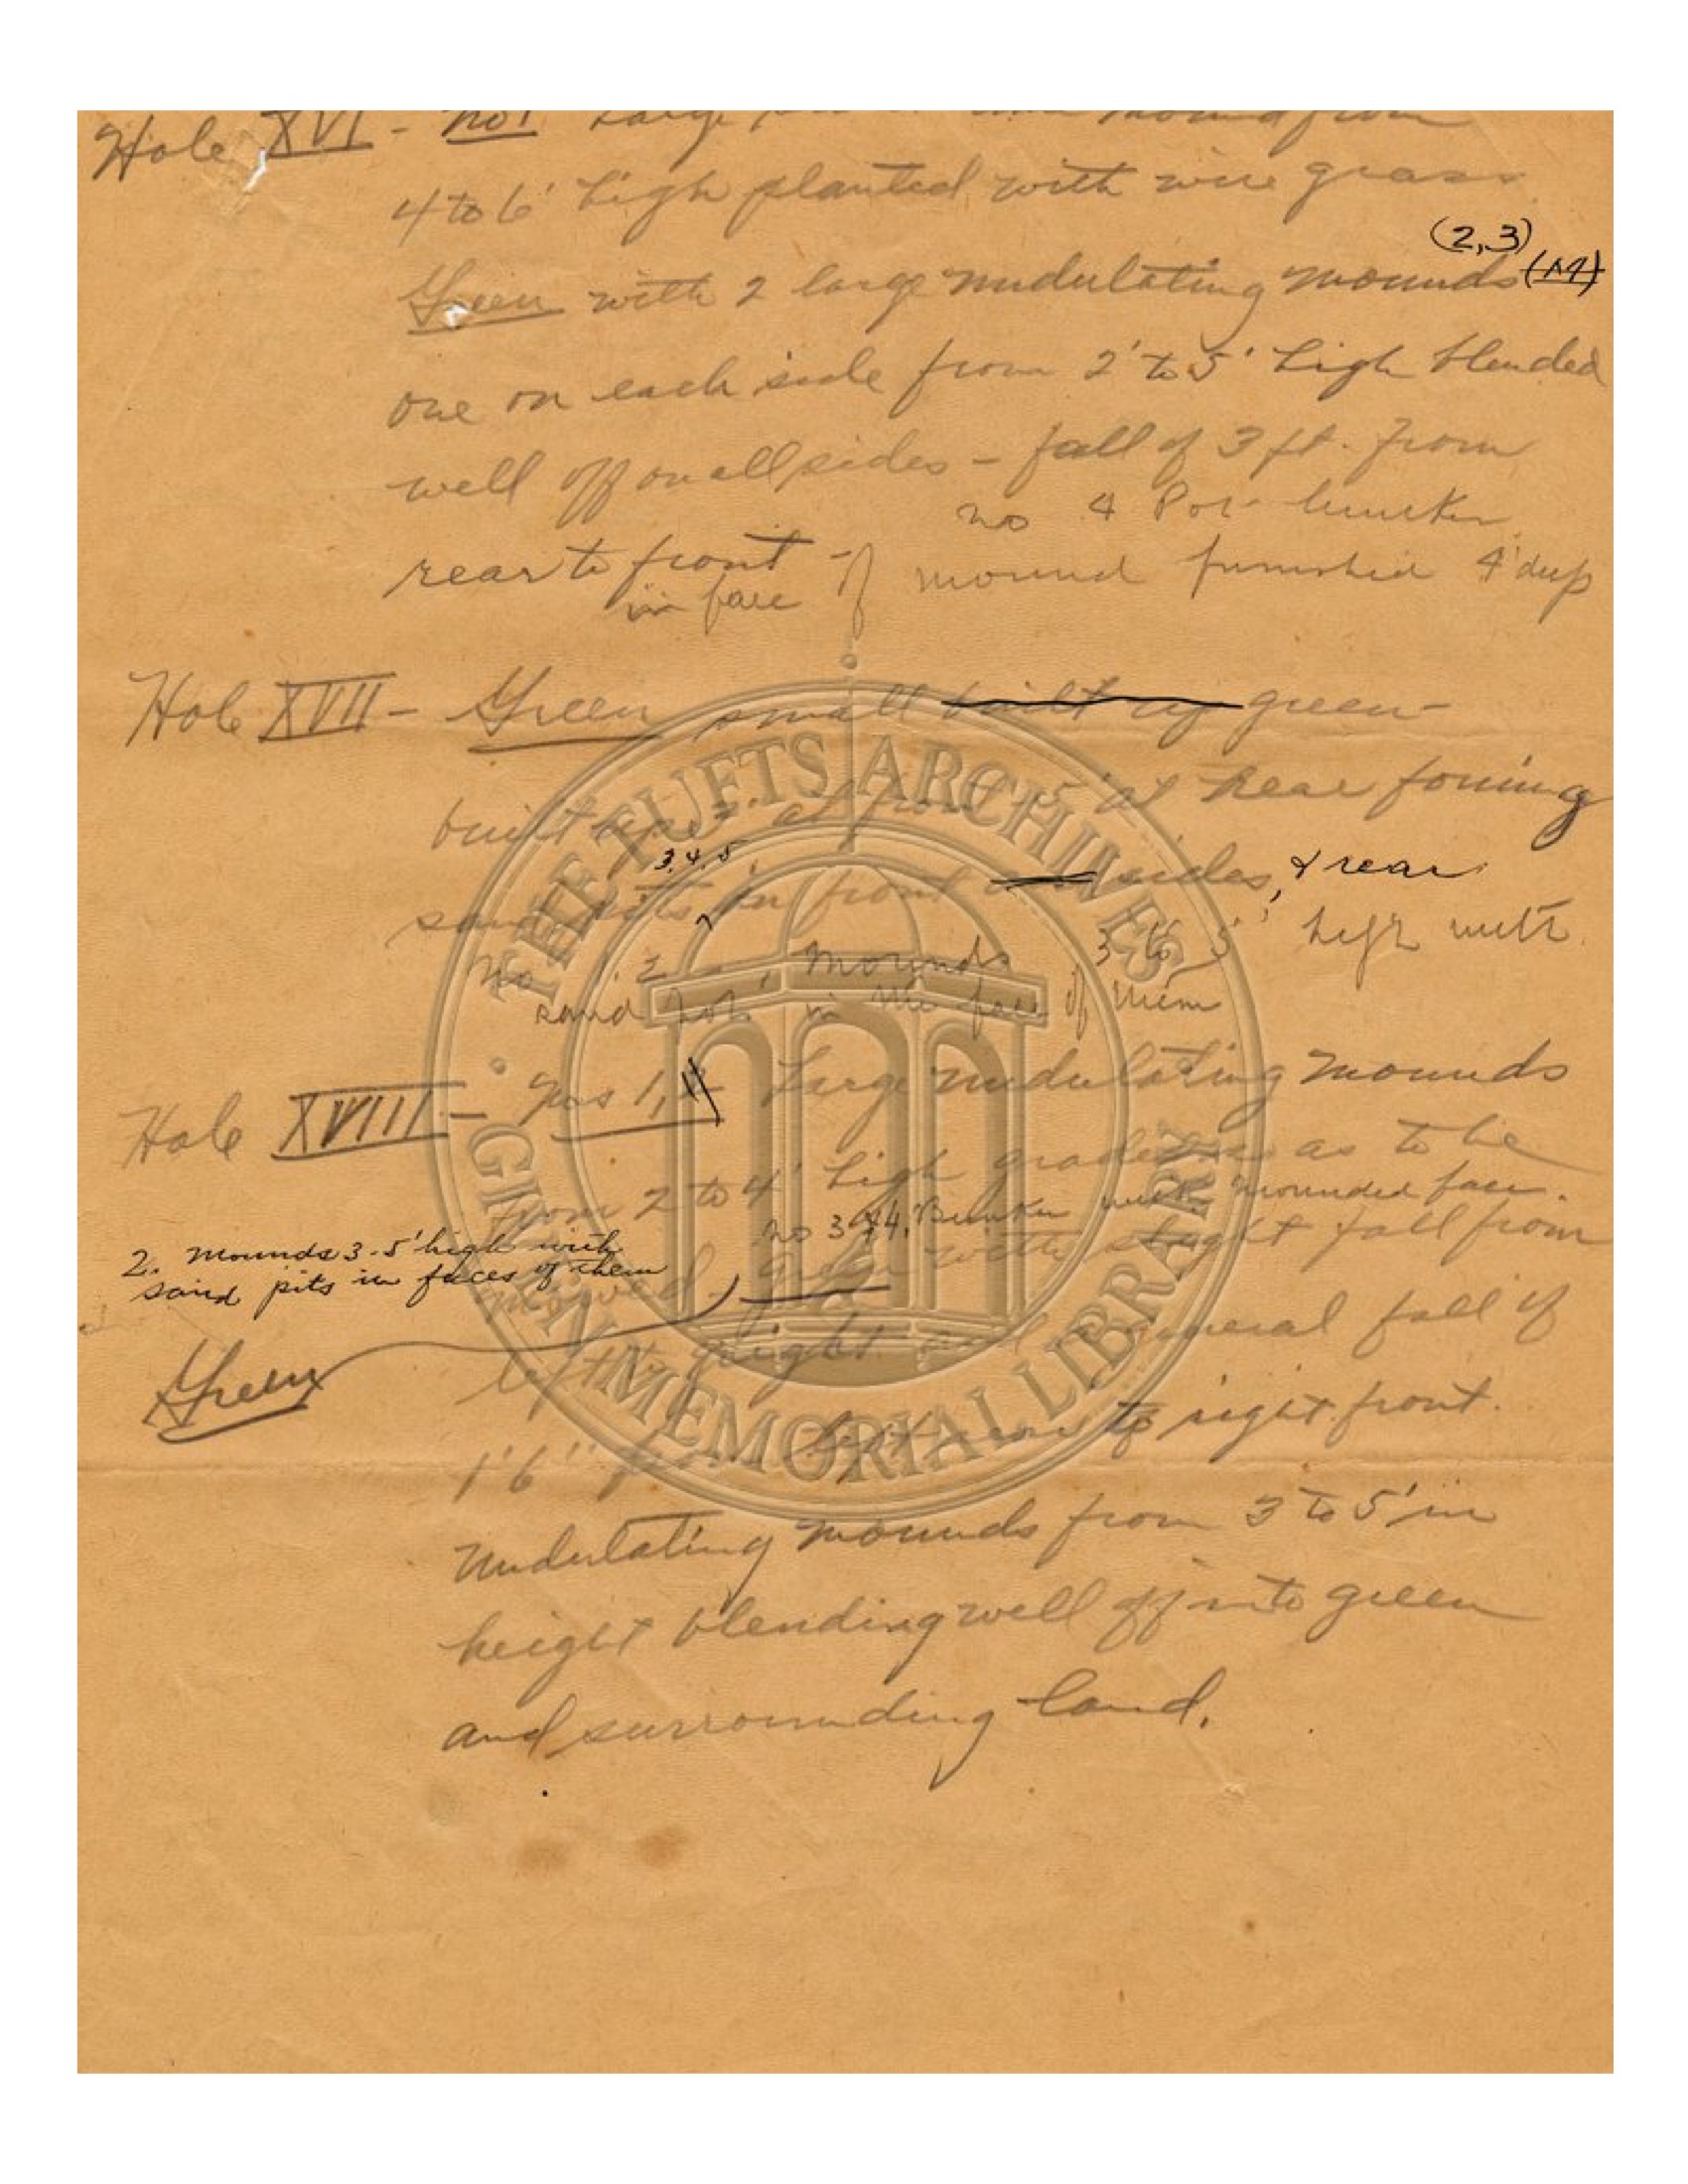 Hole XVI - No 1 Large mound from
4 to 6' high planted with wire grass
(2,3)
Green with 2 large undulating mounds
one on each side from 2' to 5' high blended
well off on all sides - fall of 3 ft. from
no 4 Pot bunker
rear to front - mound furnished 4' deep
in face of
Hole XVII - Green small built up green
built up at front 5' at rear forming
3.4.5
sand pits in front sides, & rear
No 1. 2 mounds 3 to 5' high with
sand pots in the face of them
Hole XVIII - Nos 1, Large undulating mounds
from 2 to 4' high graded so as to be
no 3 & 4. Bunker with mounded face.
mowed green with slight fall from
2. mounds 3-5' high with
sand pits in faces of them
Green
left to right and general fall of
1'6" from left rear to right front.
Undulating mounds from 3 to 5' in
height blending well off into green
and surrounding land.
THE TUFTS ARCHIVES
GIVEN MEMORIAL LIBRARY